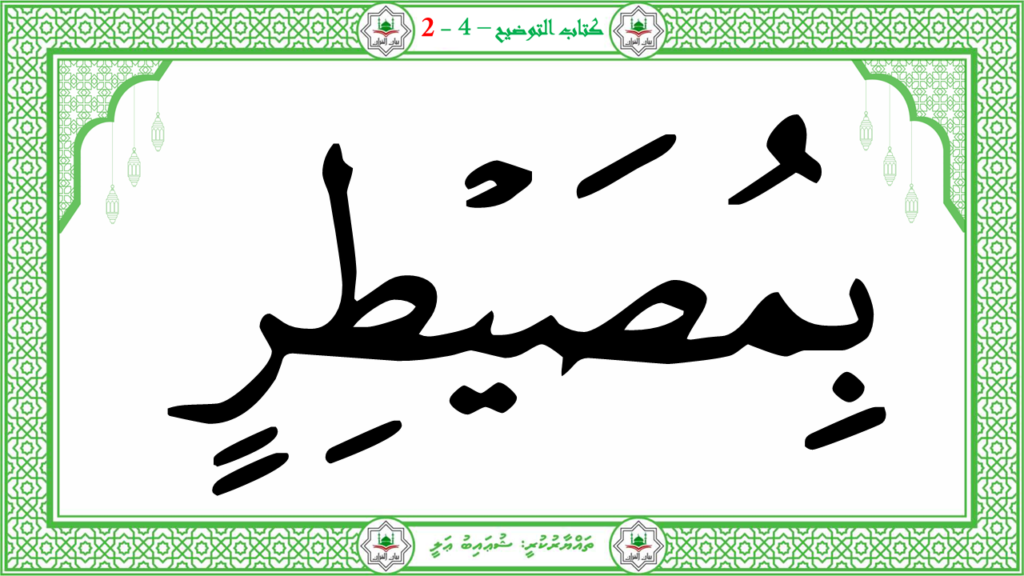 كتاب التوضيح – 4 - 2
بِمُصَيْطِرٍ
ތައްޔާރުކުރީ: ޝުޢައިބު ޢަލީ